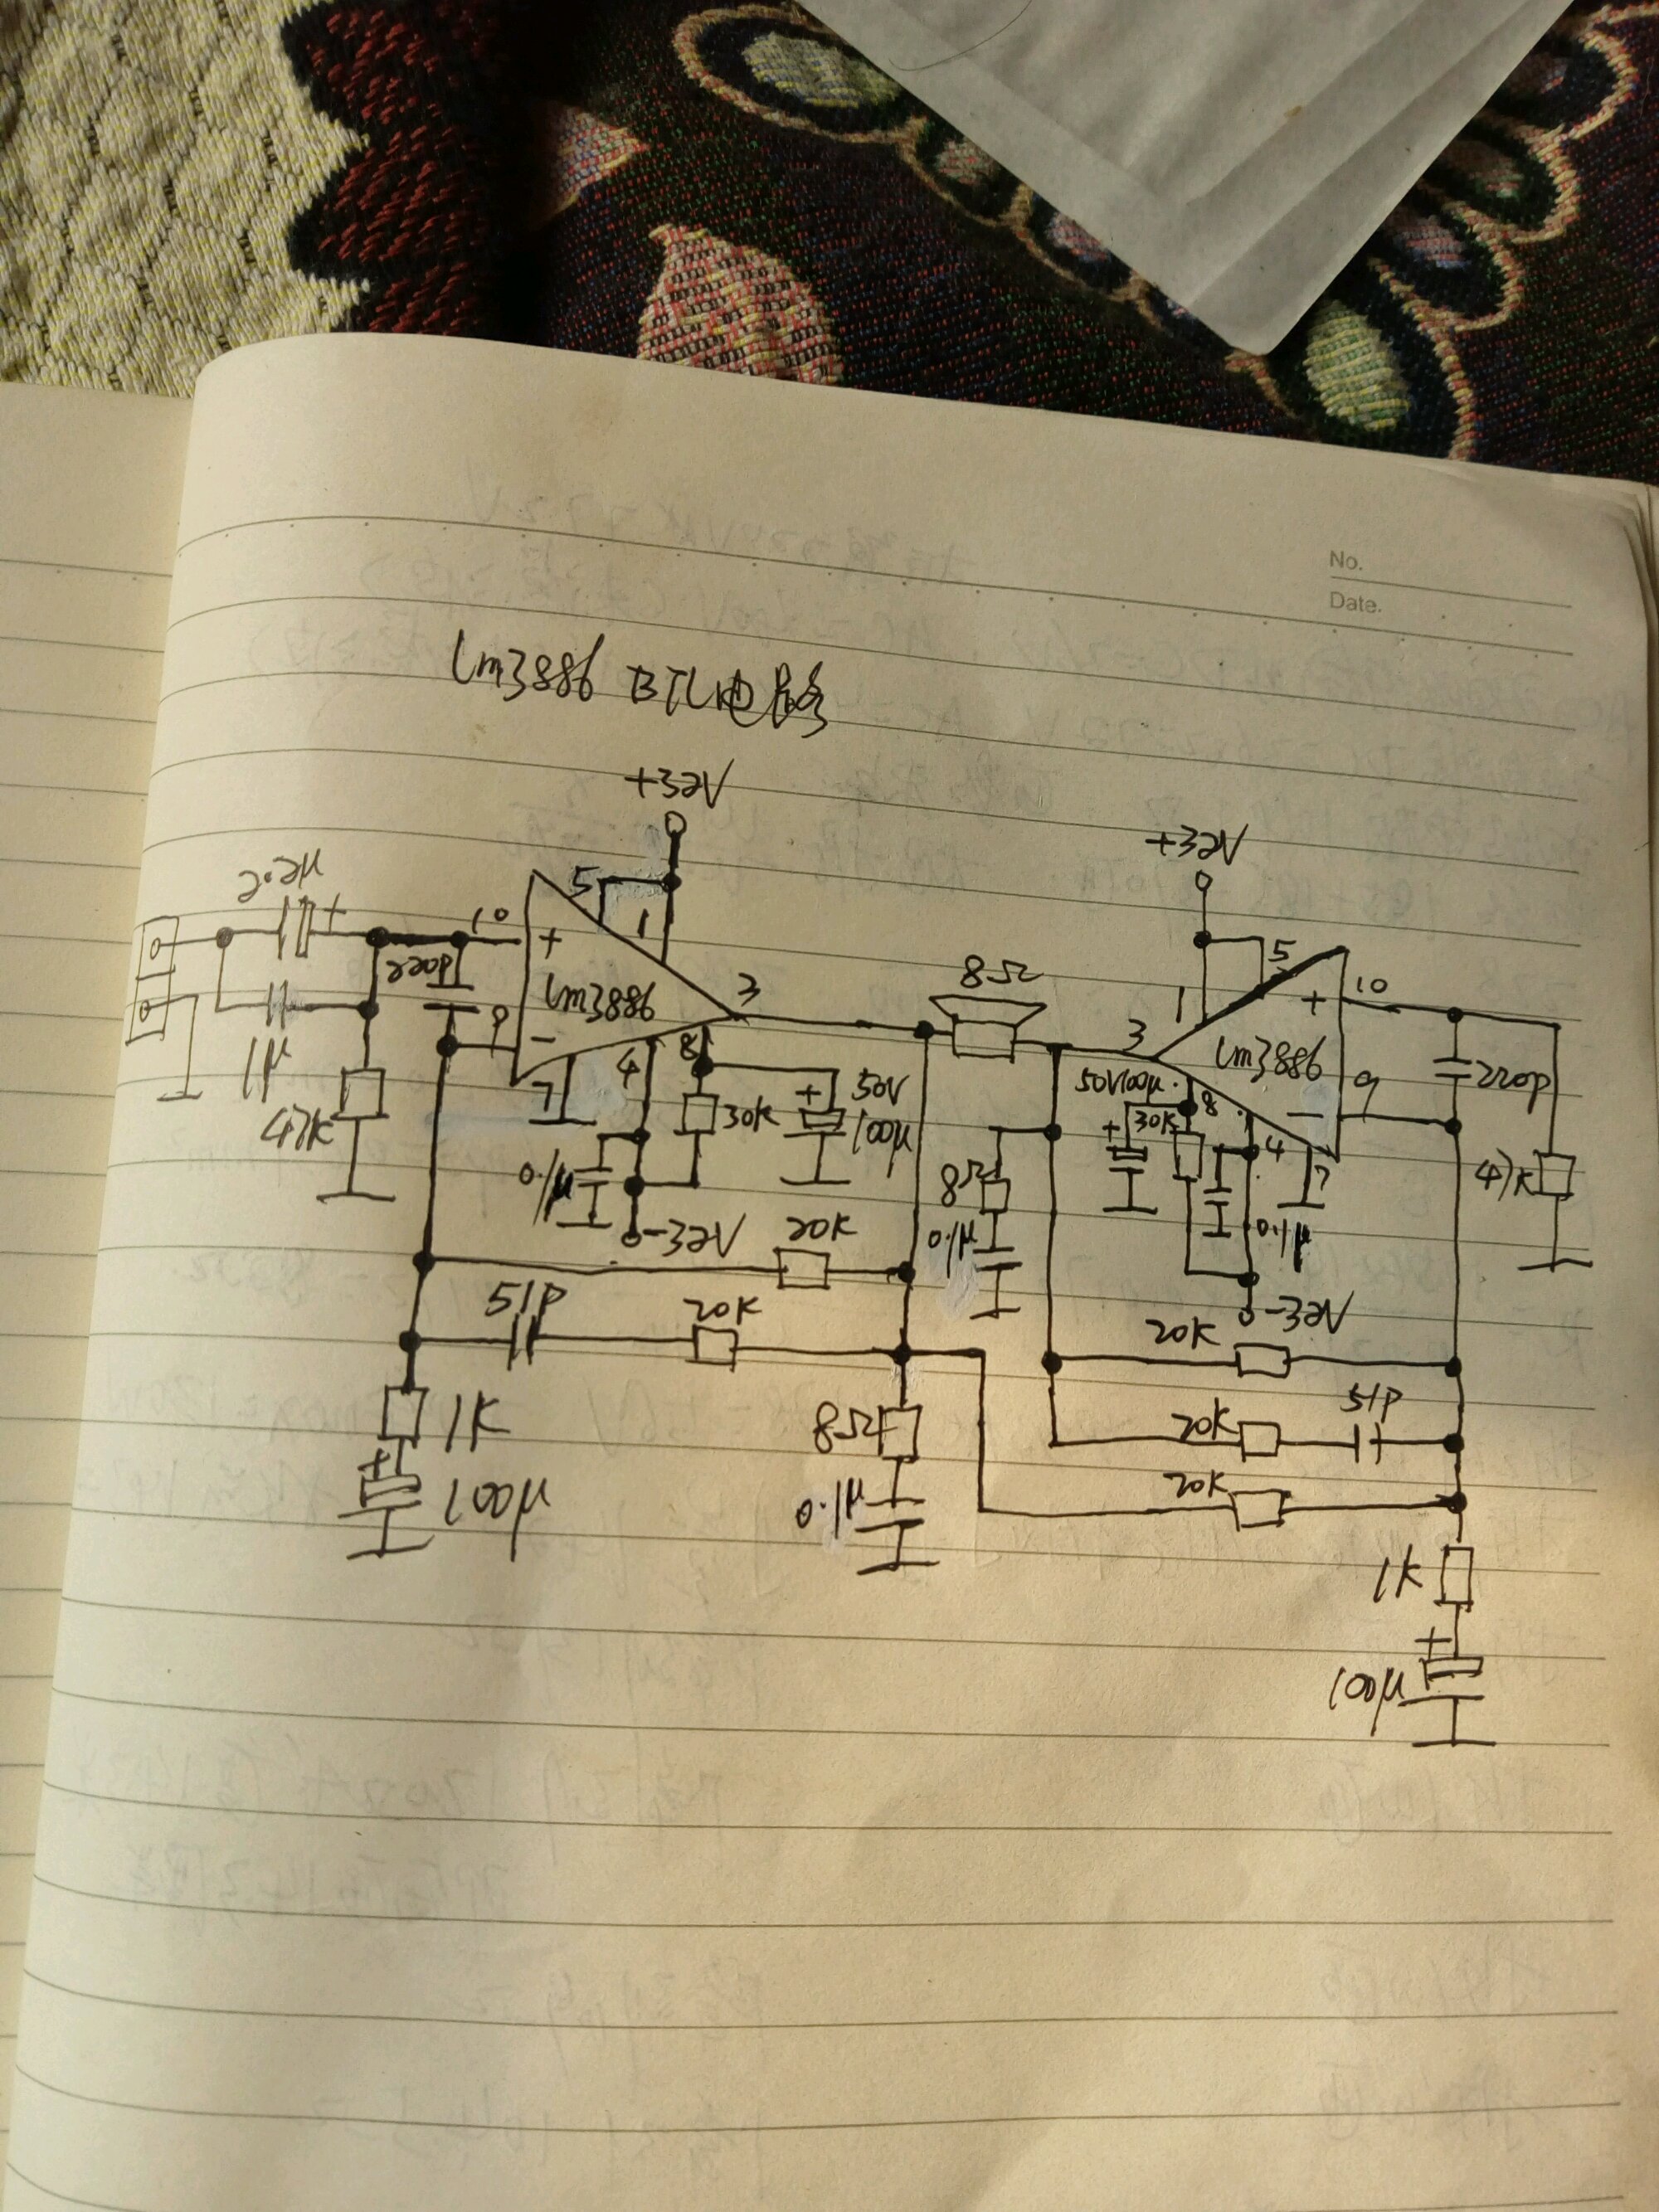 No.
Date.
Lm3886 BTL电路
+32V
+32V
2.2μ
10
5
1
+
220P
Lm3886
3
8Ω
1
5
+
10
3
Lm3886
220P
1μ
9
-
4
8
7
47K
30K
+
50V
100μ
50V100μ
8
9
-
+
30K
4
7
47K
0.1μ
-32V
8Ω
0.1μ
0.1μ
-32V
20K
51P
20K
20K
51P
1K
8Ω
20K
20K
+
100μ
0.1μ
1K
+
100μ